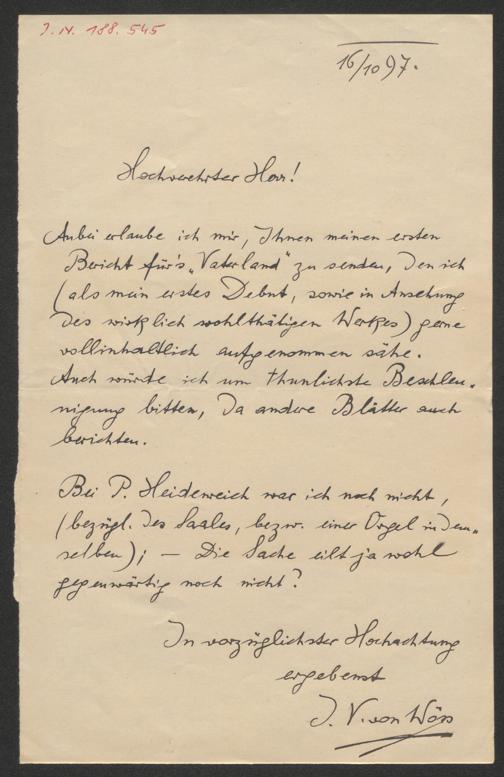 J.N. 188.545
16/10 97.
Hochverehrter Herr!
Anbei erlaube ich mir, Ihnen meinen ersten
Bericht für's „Vaterland" zu senden, den ich
(als mein erstes Debut, sowie in Ansehung
des wirklich wohlthätigen Werkes) gerne
vollinhaltlich aufgenommen sähe.
Auch würde ich um thunlichste Beschleu-
nigung bitten, da andere Blätter auch
berichten.
Bei P. Heidenreich war ich noch nicht,
(bezügl. des Saales, bezw. einer Orgel in dem-
selben); — Die Sache eilt ja wohl
gegenwärtig noch nicht?
In vorzüglichster Hochachtung
ergebenst
J. V. von Wöss